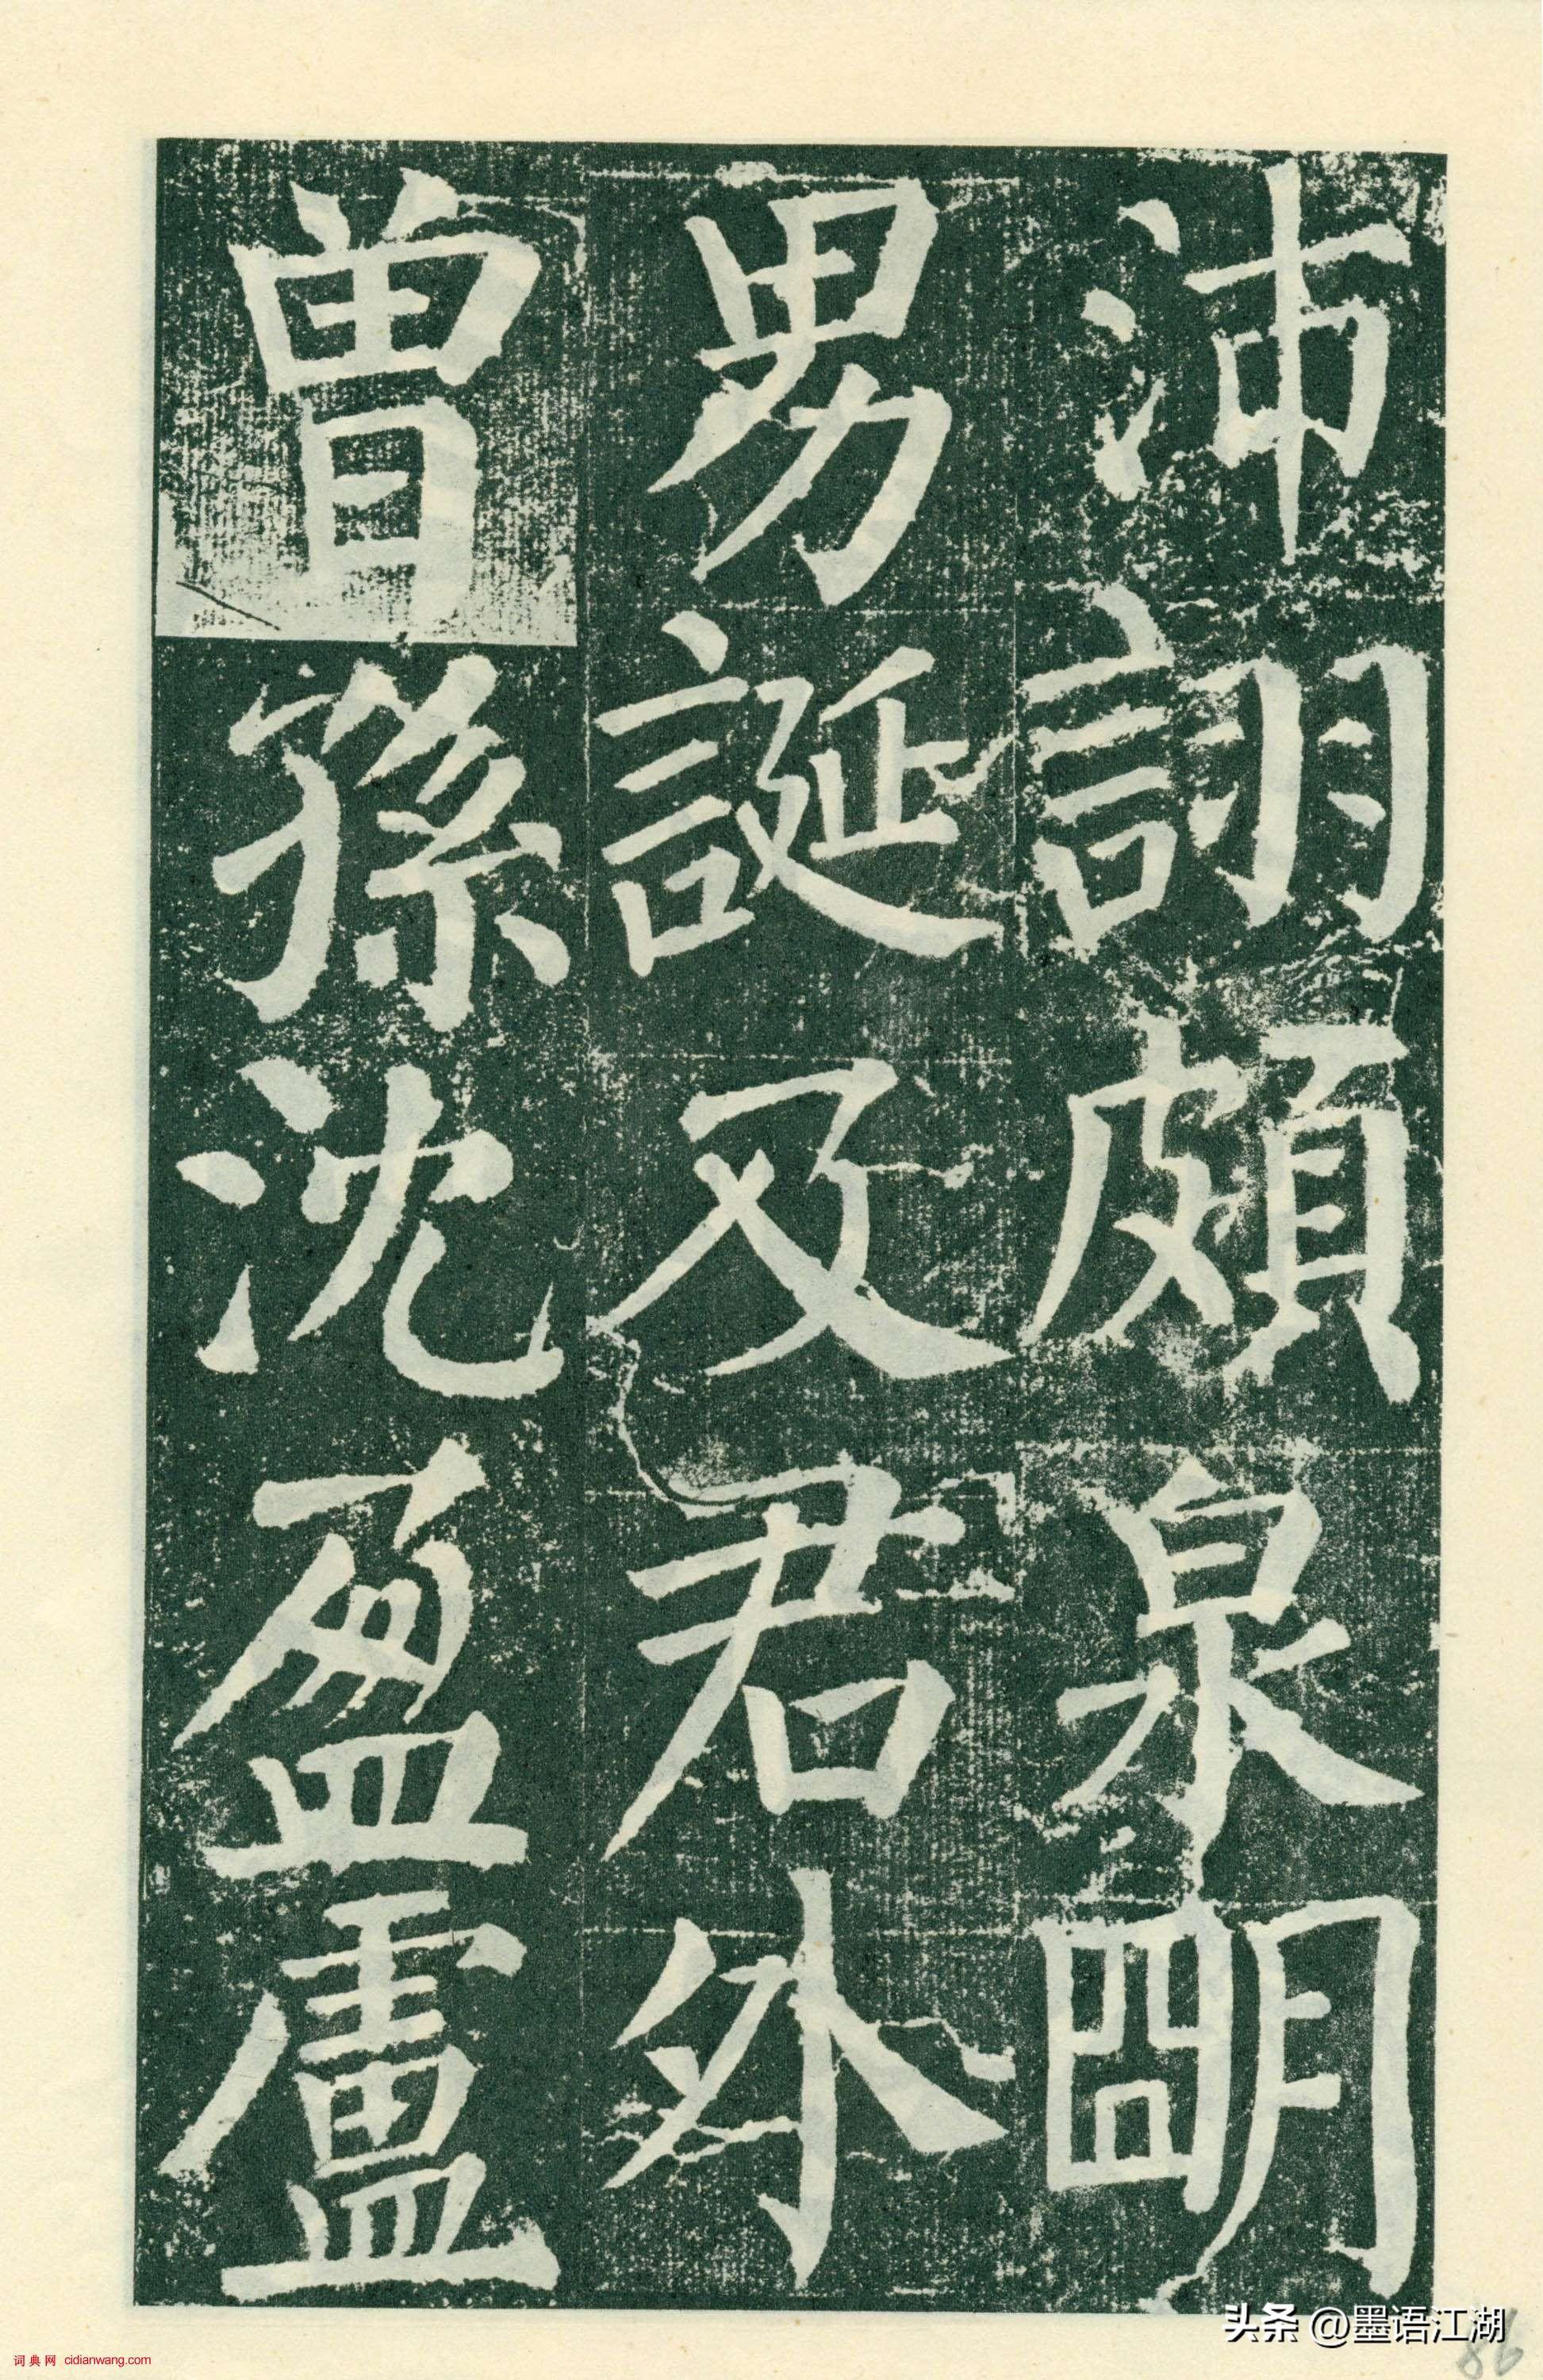 沛詡頗泉明
男誕及君外
曾孫沈盈盧
头条 @墨语江湖
词典网 cidianwang.com
86